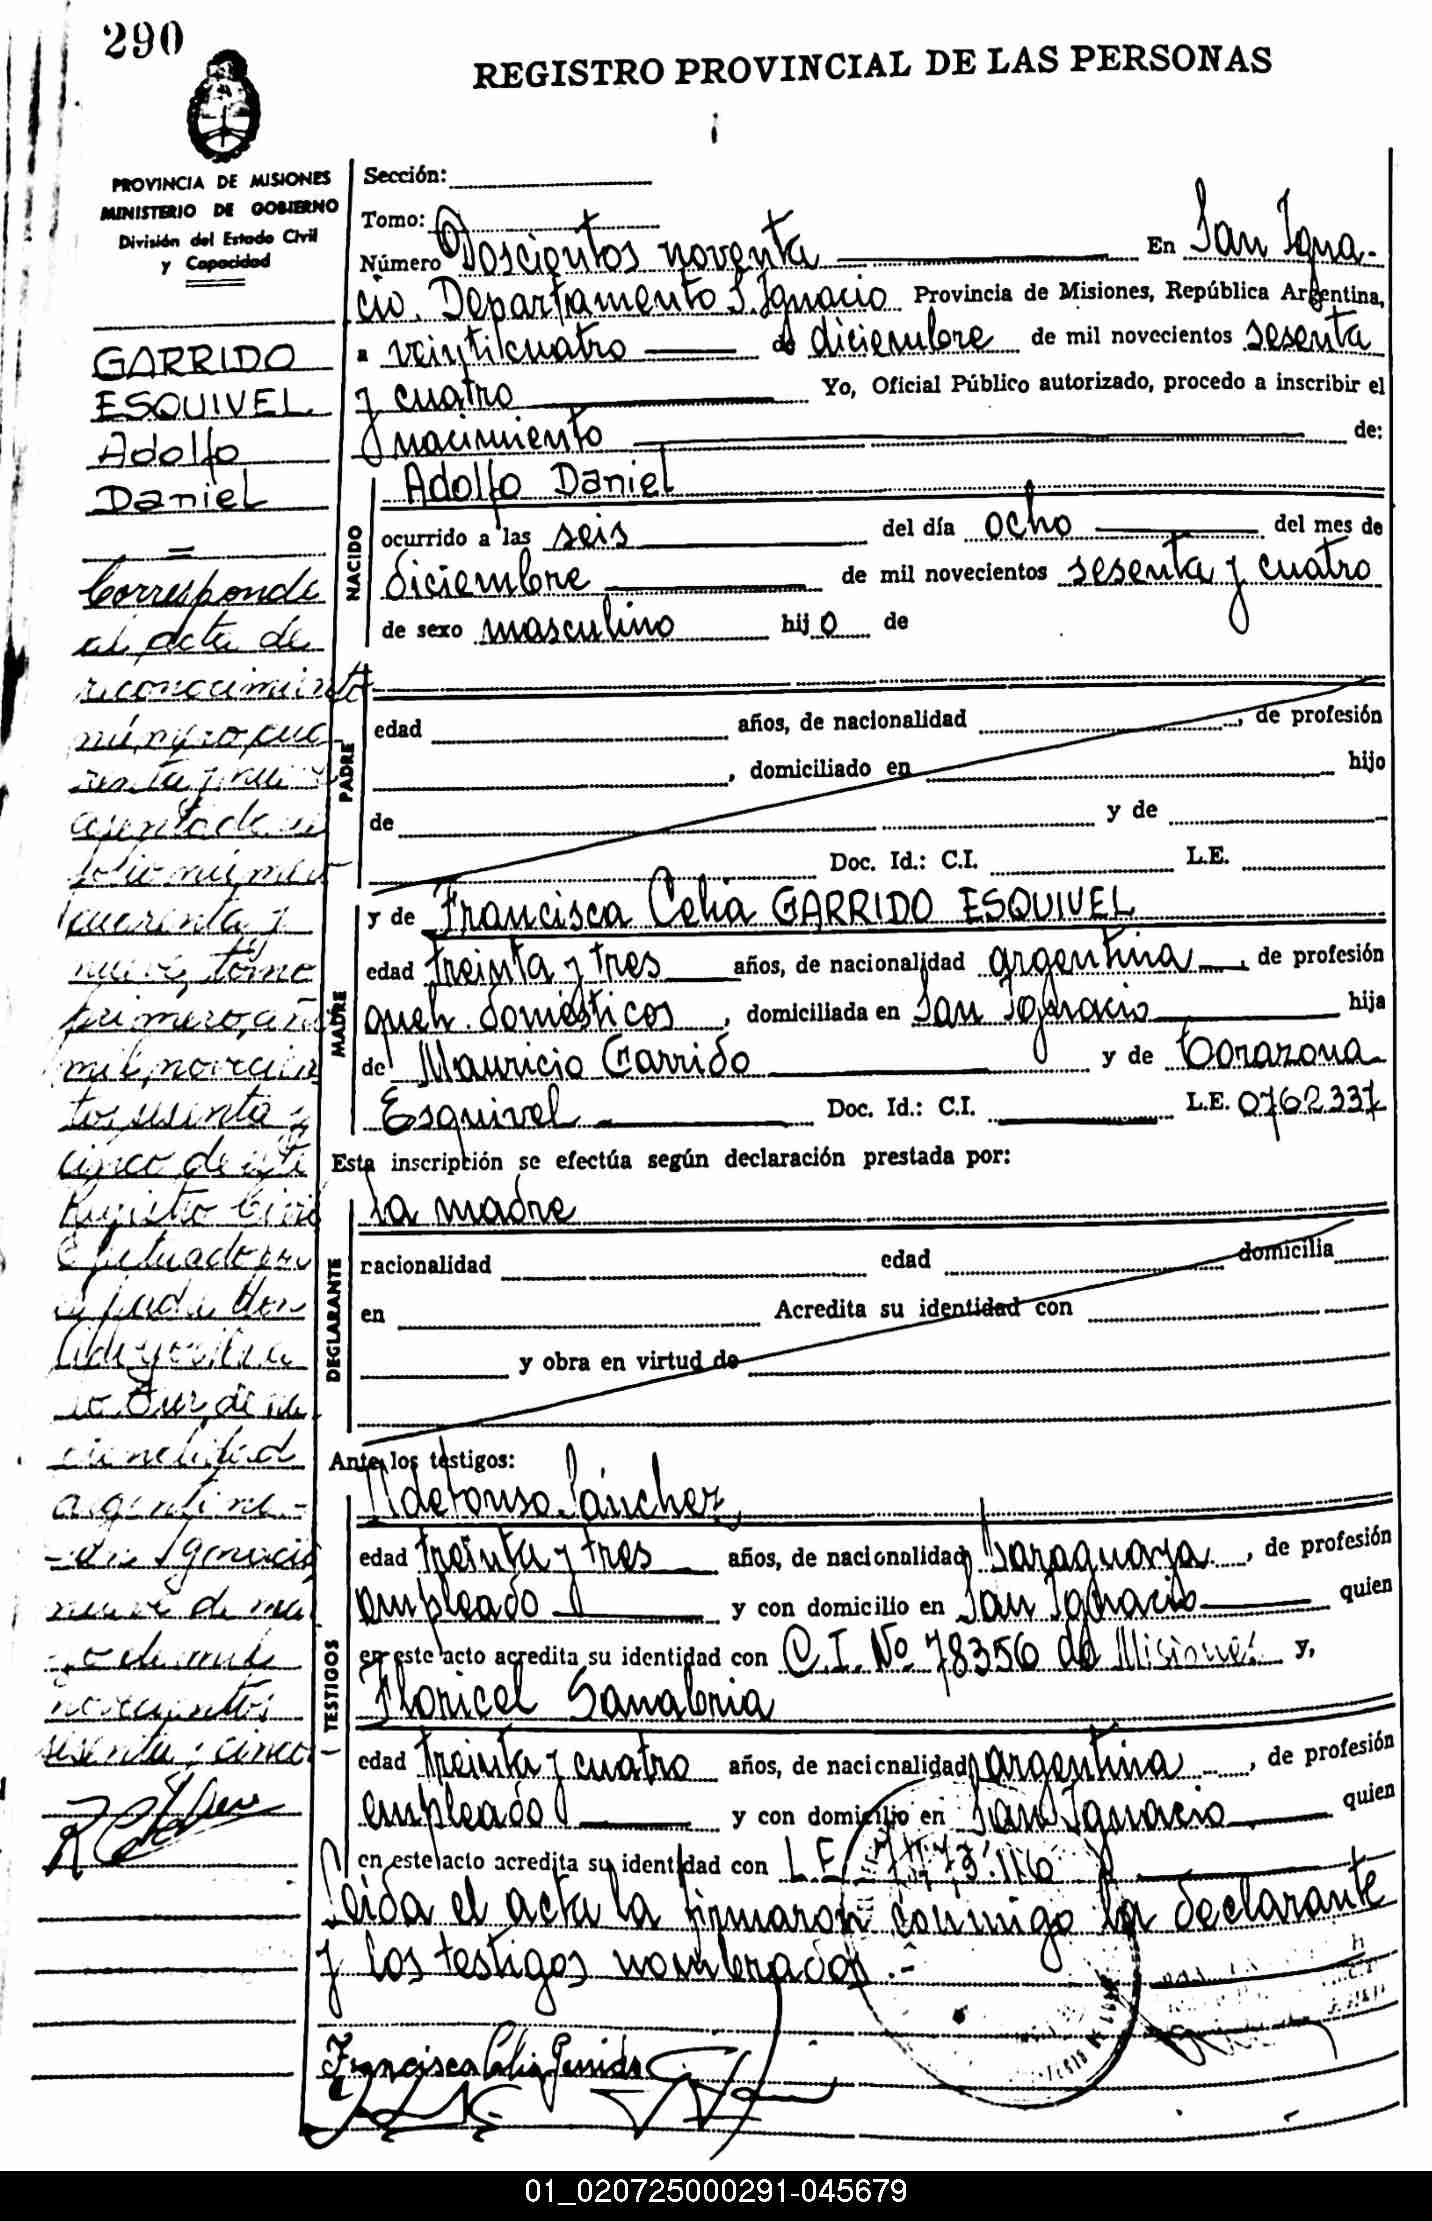 290
REGISTRO PROVINCIAL DE LAS PERSONAS
PROVINCIA DE MISIONES
MINISTERIO DE GOBIERNO
División del Estado Civil
y Capacidad
GARRIDO
ESQUIVEL
Adolfo
Daniel
Corresponde
al acta de
reconocimiento
número cua
renta y nueve
asentada en
folio número
cuarenta y
nueve, tomo
primero, año
mil novecien
tos sesenta y
cinco de este
Registro Civil
Efectuado por
el padre don
de na
cionalidad
argentina -
San Ignacio
nueve de ma
yo de mil
novecientos
sesenta y cinco
Sección:
Tomo:
Número Doscientos noventa En San Igna-
cio. Departamento S. Ignacio Provincia de Misiones, República Argentina,
a veintilcuatro de diciembre de mil novecientos sesenta
y cuatro Yo, Oficial Público autorizado, procedo a inscribir el
nacimiento de:
NACIDO
Adolfo Daniel
ocurrido a las seis del día ocho del mes de
diciembre de mil novecientos sesenta y cuatro
de sexo masculino hijo de
PADRE
edad años, de nacionalidad , de profesión
, domiciliado en hijo
de y de
Doc. Id.: C.I. L.E.
MADRE
y de Francisca Celia GARRIDO ESQUIVEL
edad treinta y tres años, de nacionalidad argentina, de profesión
queh. domésticos, domiciliada en San Ignacio hija
de Mauricio Garrido y de Corazona
Esquivel Doc. Id.: C.I. L.E. 0762337
Esta inscripción se efectúa según declaración prestada por:
DECLARANTE
la madre
nacionalidad edad domicilia
en Acredita su identidad con
y obra en virtud de
Ante los testigos:
TESTIGOS
Ildefonso Sánchez
edad treinta y tres años, de nacionalidad paraguaya, de profesión
empleado y con domicilio en San Ignacio quien
en este acto acredita su identidad con C.I. No 78356 de Misiones y,
Floricel Sanabria
edad treinta y cuatro años, de nacionalidad argentina, de profesión
empleado y con domicilio en San Ignacio quien
en este acto acredita su identidad con L.E.
Leida el acta la firmaron conmigo la declarante
y los testigos nombrados.-
Francisca Celia Garrido
01_020725000291-045679